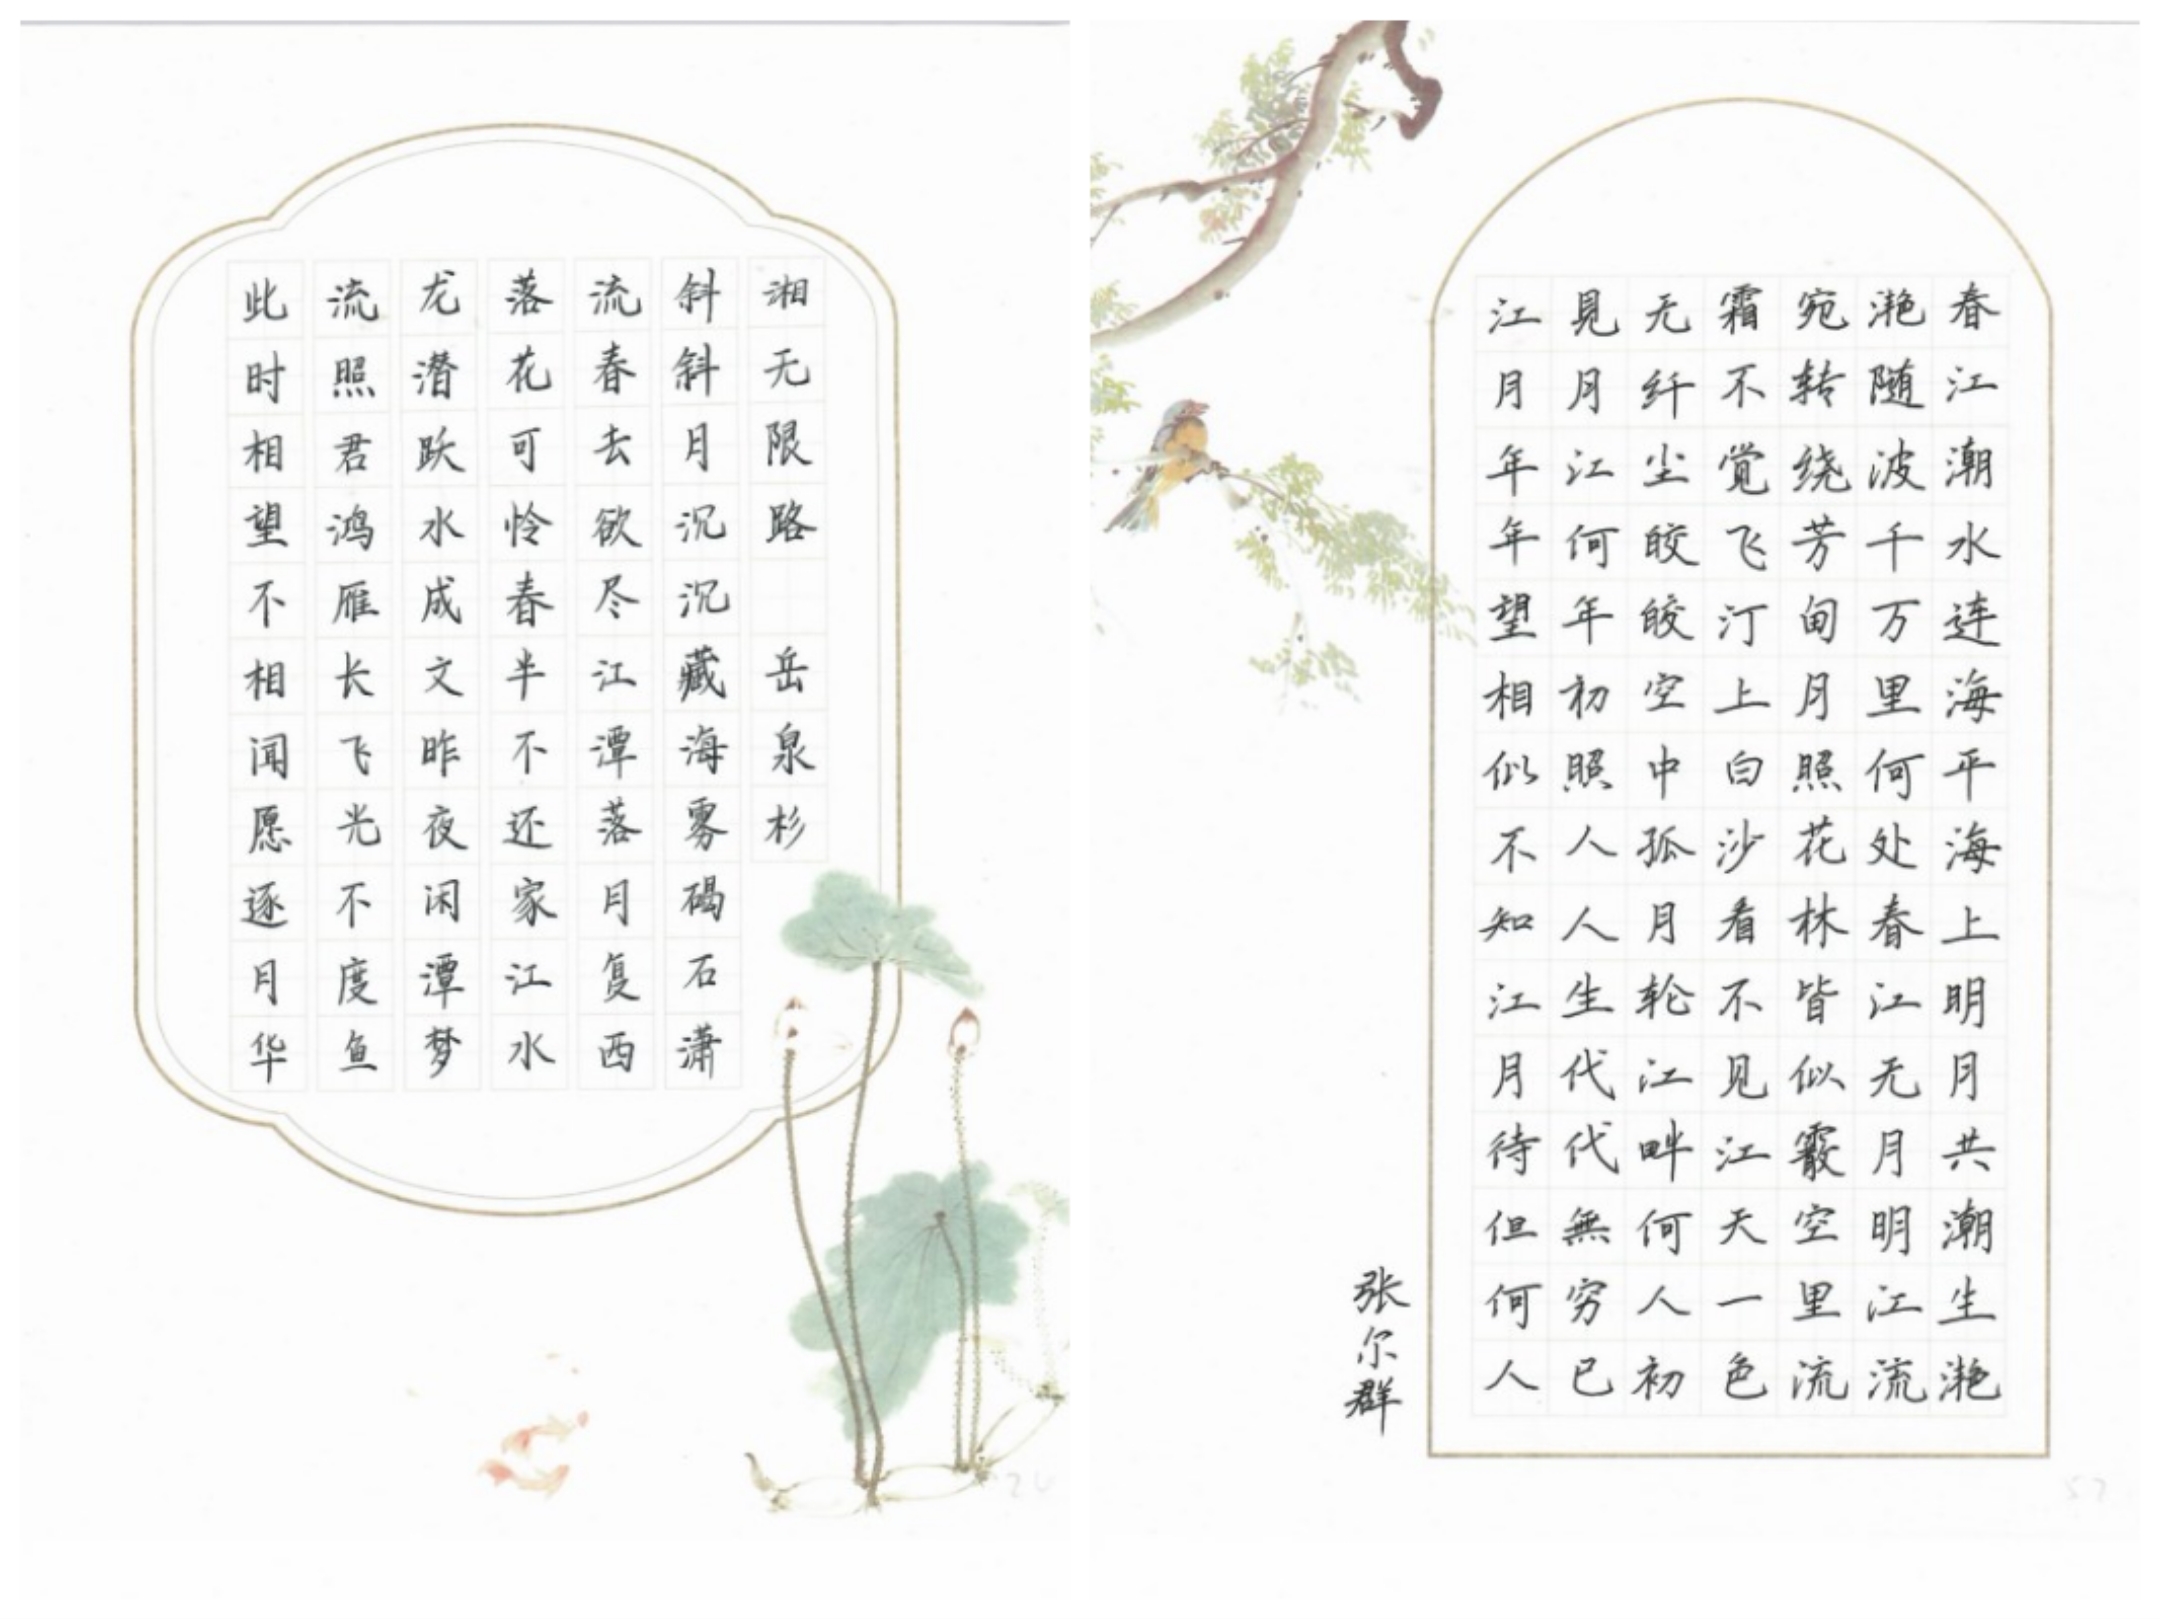 此时相望不相闻愿逐月华
流照君鸿雁长飞光不度鱼
龙潜跃水成文昨夜闲潭梦
落花可怜春半不还家江水
流春去欲尽江潭落月复西
斜斜月沉沉藏海雾碣石潇
湘无限路 岳泉杉
春江潮水连海平海上明月共潮生滟
滟随波千万里何处春江无月明江流
宛转绕芳甸月照花林皆似霰空里流
霜不觉飞汀上白沙看不见江天一色
无纤尘皎皎空中孤月轮江畔何人初
見月江何年初照人人生代代無穷已
江月年年望相似不知江月待但何人
张尔群